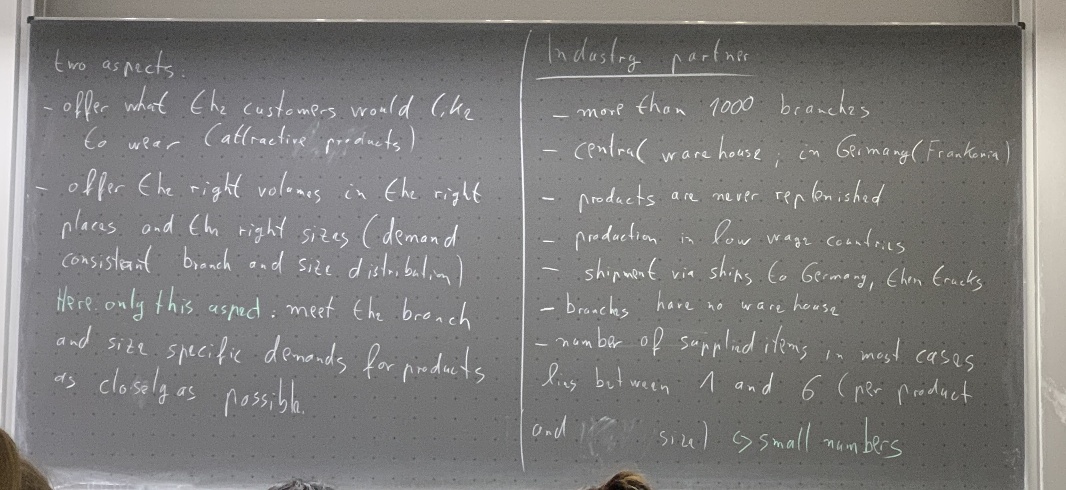 two aspects:
- offer what the customers would like
to wear (attractive products)
- offer the right volumes in the right
places and the right sizes (demand
consistent branch and size distribution)
Here only this aspect: meet the branch
and size specific demands for products
as closely as possible.
Industry partner
- more than 1000 branches
- central warehouse, in Germany (Frankonia)
- products are never replenished
- production in low wage countries
- shipment via ships to Germany, then trucks
- branches have no warehouse
- number of supplied items in most cases
lies between 1 and 6 (per product
and size) ↳ small numbers